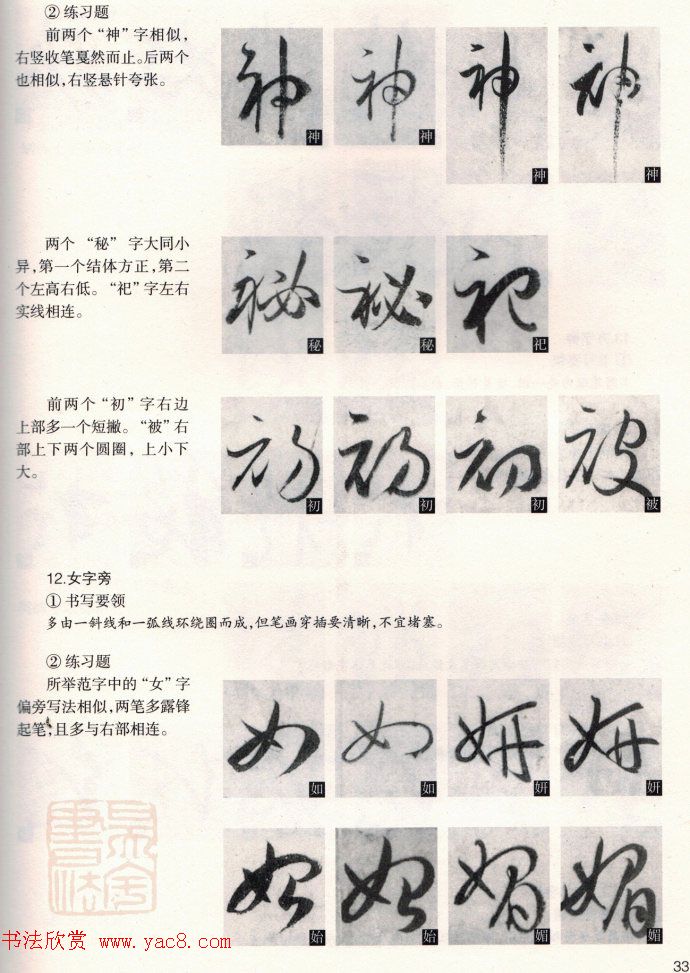 ② 练习题
前两个“神”字相似，
右竖收笔戛然而止。后两个
也相似，右竖悬针夸张。
神 神 神 神
两个 “秘” 字大同小
异，第一个结体方正，第二
个左高右低。“祀”字左右
实线相连。
秘 秘 祀
前两个“初”字右边
上部多一个短撇。“被”右
部上下两个圆圈，上小下
大。
初 初 初 被
12.女字旁
① 书写要领
多由一斜线和一弧线环绕圈而成，但笔画穿插要清晰，不宜堵塞。
② 练习题
所举范字中的“女”字
偏旁写法相似，两笔多露锋
起笔，且多与右部相连。
如 如 妍 妍
始 始 媚 媚
书法欣赏 www.yac8.com
33